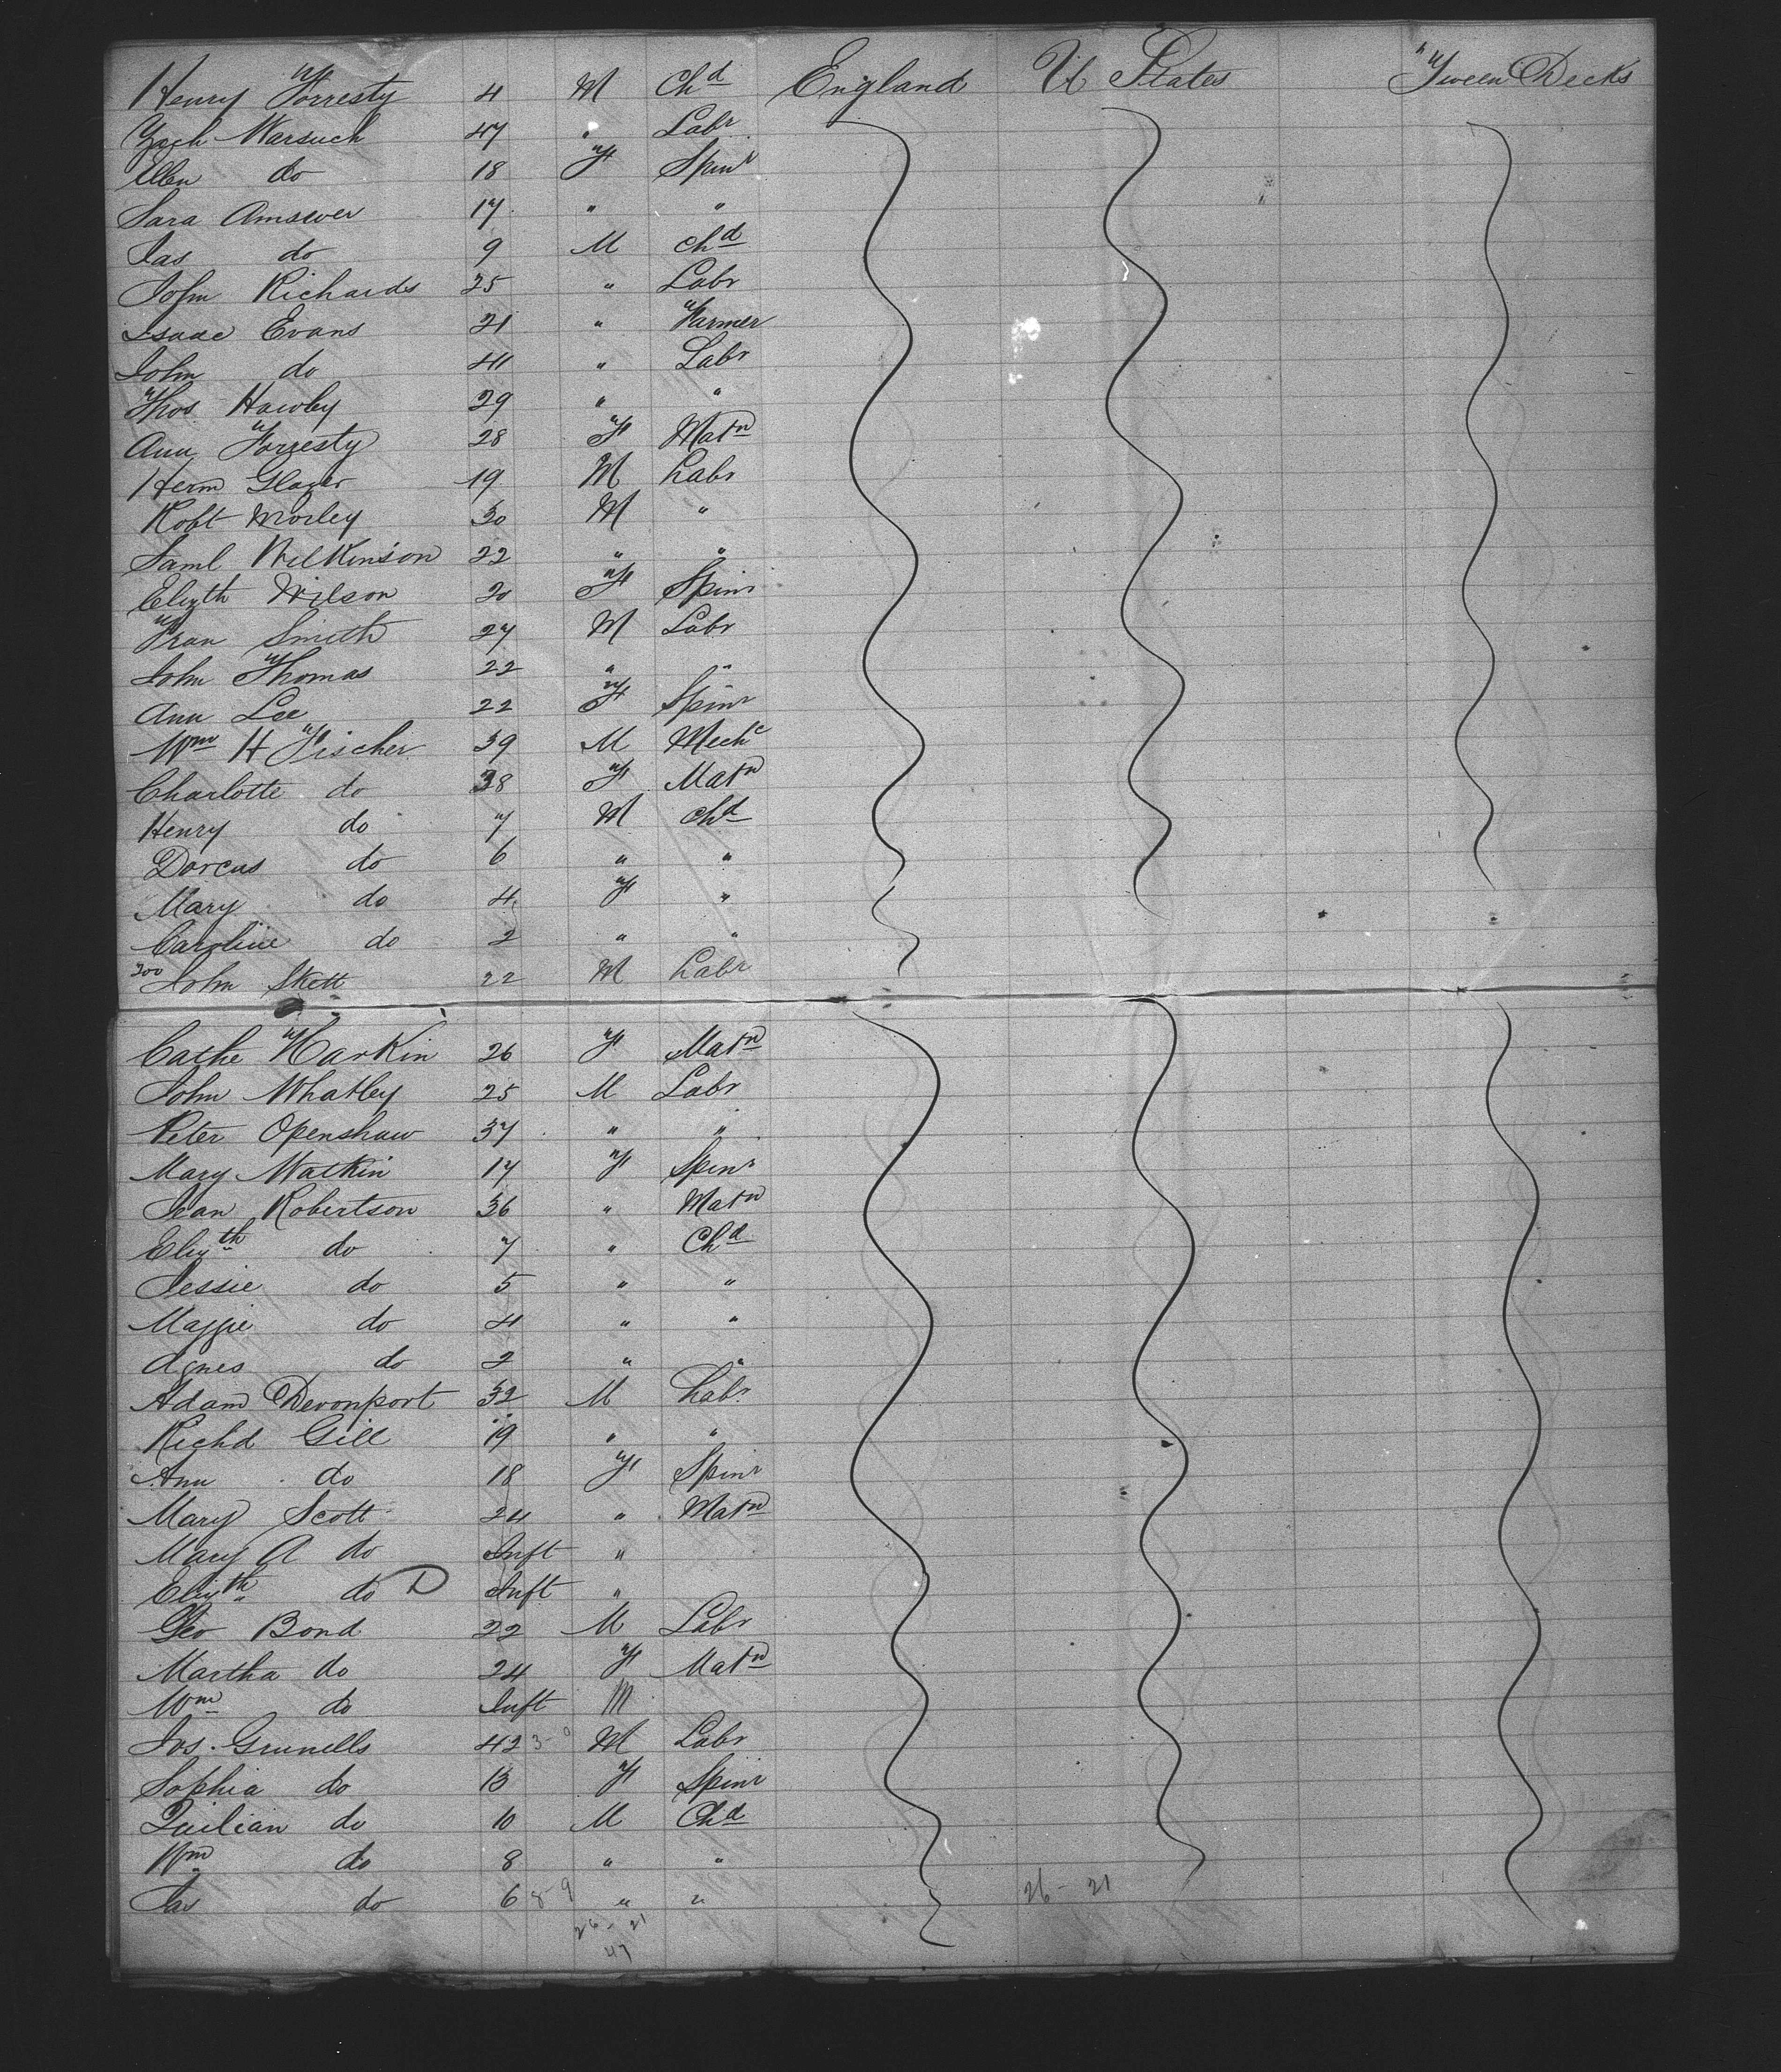 Henry Forresty 4 M Chd England U States 'Tween Decks
Zach Warsuch 47 " Labr
Ellen do 18 F Spinr
Sara Amsewer 17 " "
Jas do 9 M Chd
John Richards 25 " Labr
Isaac Evans 21 " Farmer
John do 41 " Labr
Thos Hawley 29 " "
Ann Forresty 28 F Matn
Herm Glazer 19 M Labr
Robt Morley 30 M "
Saml Wilkinson 22 " "
Elizth Wilson 20 F Spinr
Fran Smith 27 M Labr
John Thomas 22 " "
Ann Lee 22 F Spinr
Wm H Fischer 39 M Mechc
Charlotte do 38 F Matn
Henry do 7 M Chd
Dorcus do 6 " "
Mary do 4 F "
Caroline do 2 " "
300 John Skett 22 M Labr
Cathe Harkin 26 F Matn
John Whatley 25 M Labr
Peter Openshaw 37 " "
Mary Watkin 17 F Spinr
Jean Robertson 36 " Matn
Elizth do 7 " Chd
Jessie do 5 " "
Maggie do 4 " "
Agnes do 2 " "
Adam Devonport 32 M Labr
Richd Gill 19 " "
Ann do 18 F Spinr
Mary Scott 24 " Matn
Mary A do Inft "
Elizth do D Inft "
Geo Bond 22 M Labr
Martha do 24 F Matn
Wm do Inft M
Jos. Grunells 42 3- M Labr
Sophia do 13 F Spinr
Quilian do 10 M Chd
Wm do 8 " "
Jas do 6 8-9 " " 26-21
26-21
47